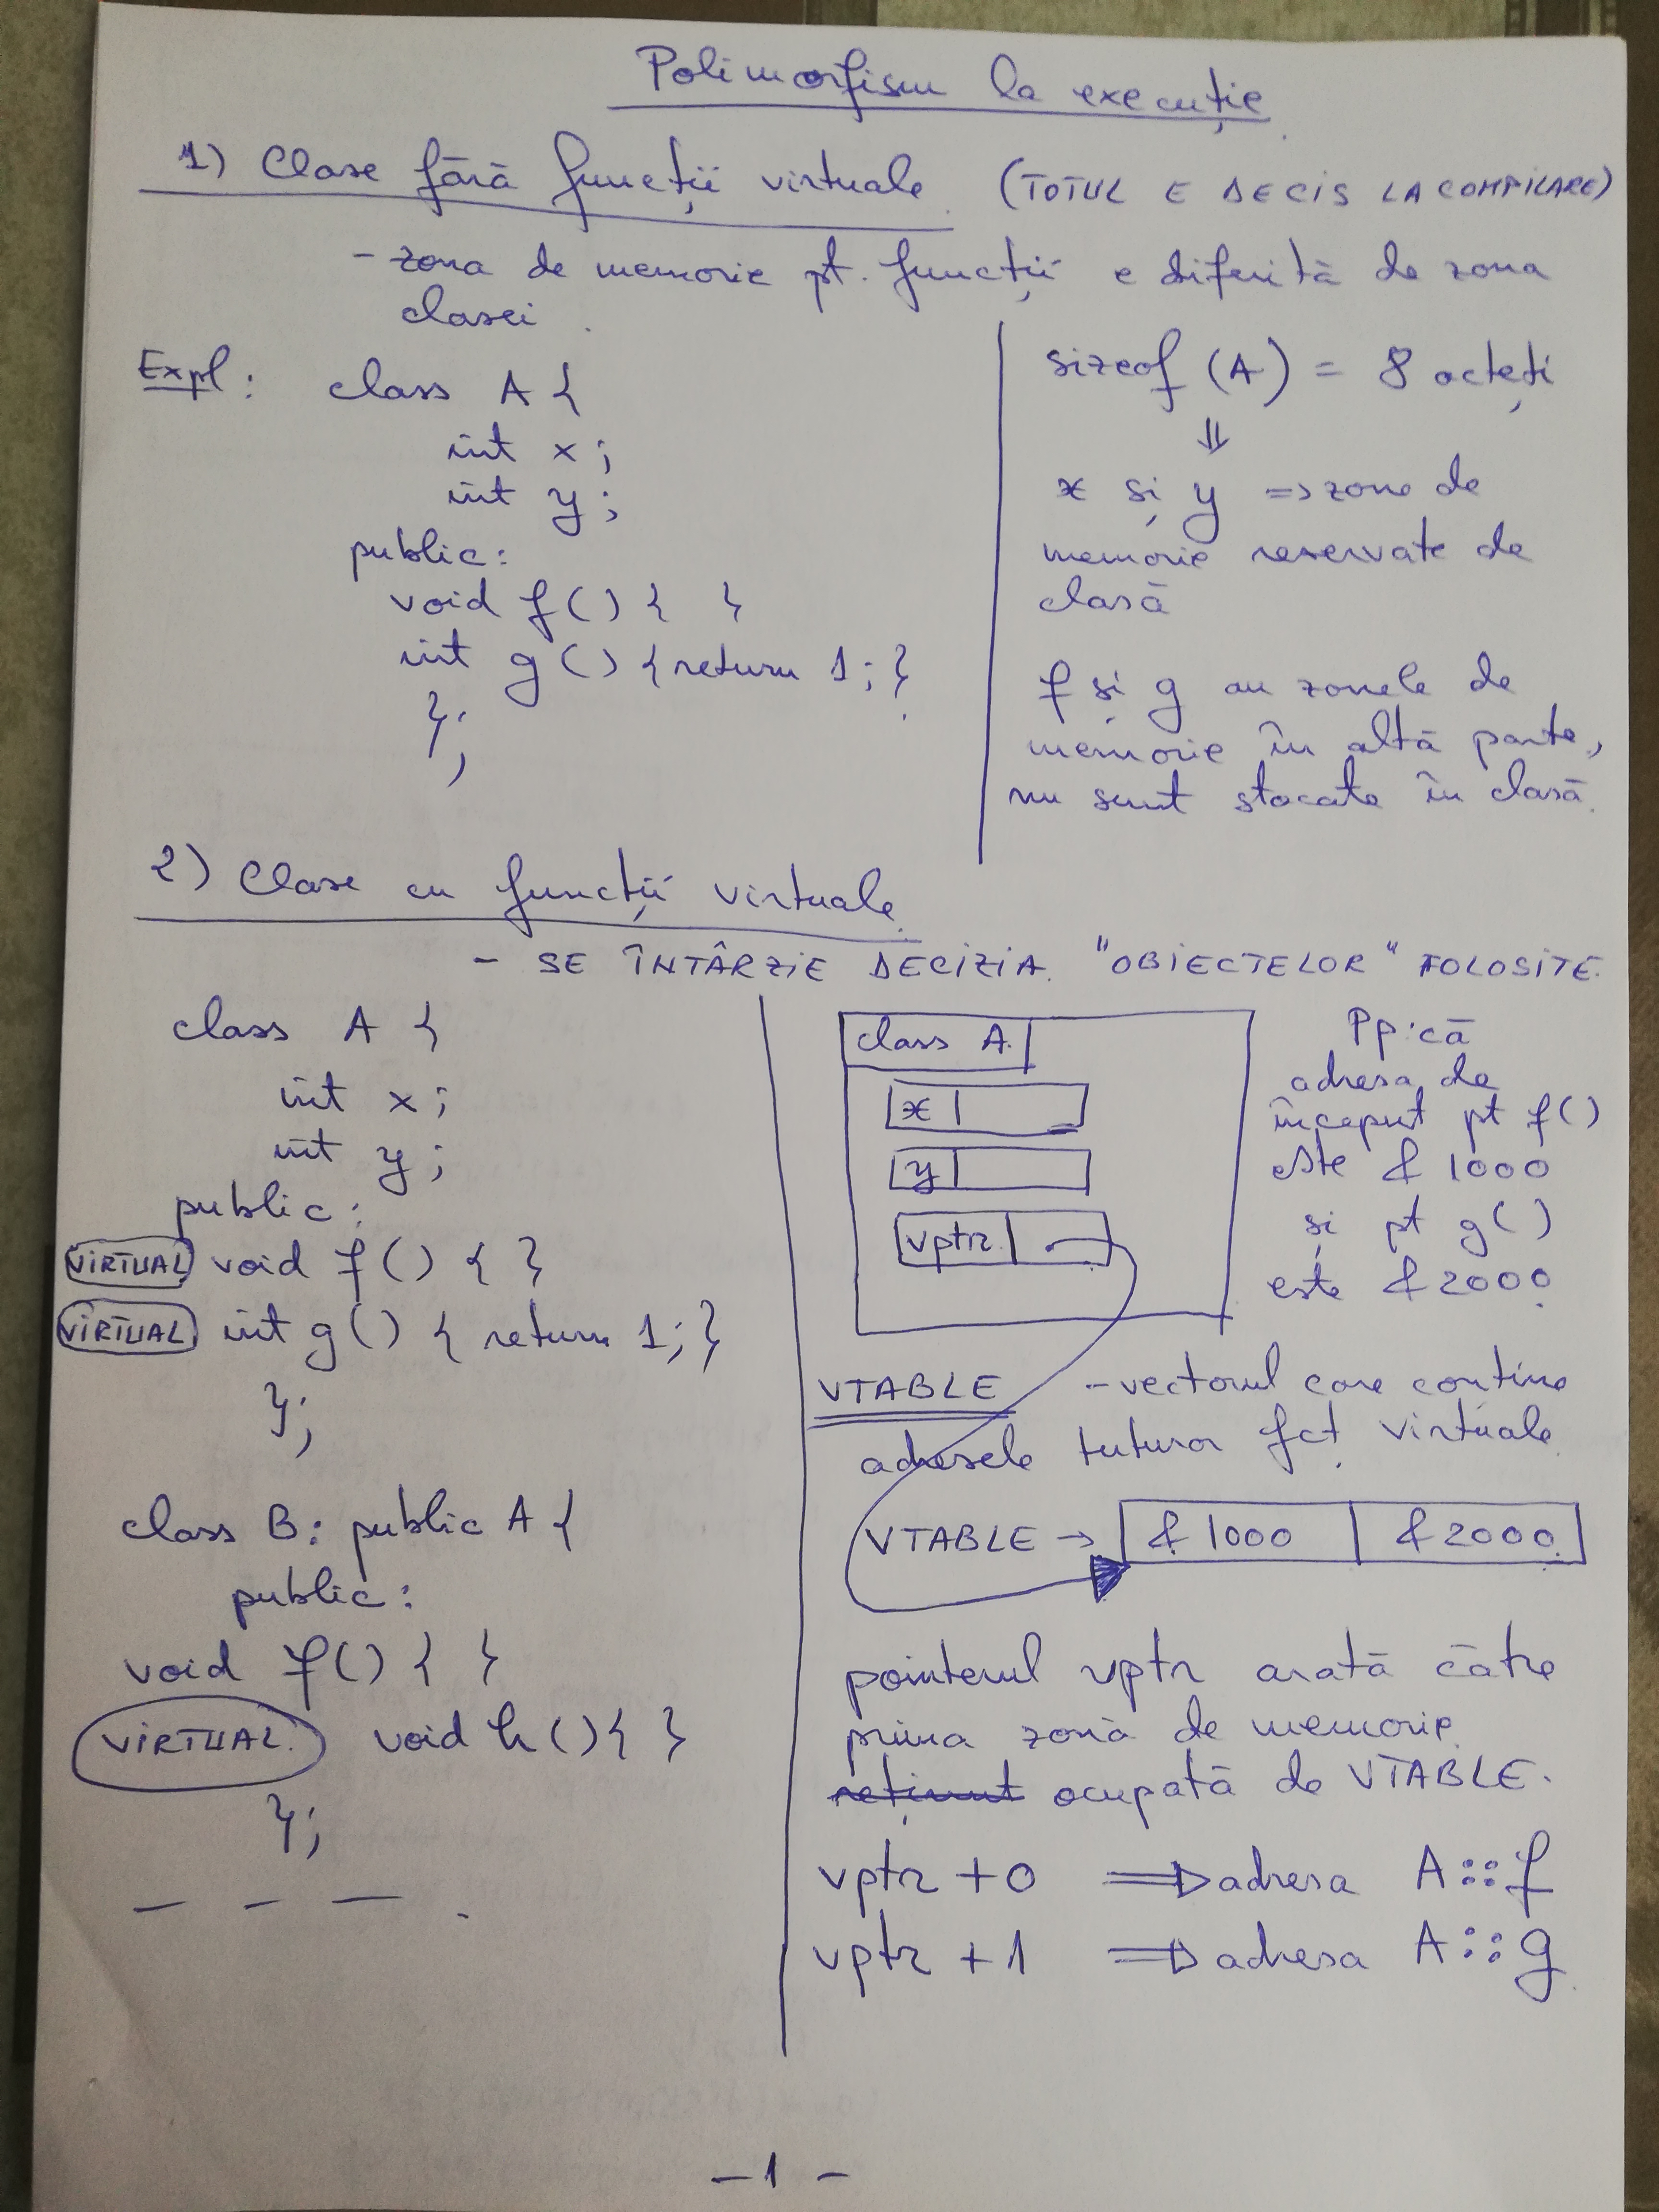 Polimorfism la execuție
1) Clase fără funcții virtuale (TOTUL E DECIS LA COMPILARE)
- zona de memorie pt. funcții e diferită de zona
clasei.
Expl: class A {
int x;
int y;
public:
void f() { }
int g() { return 1; }
};
sizeof (A) = 8 octeți
⇓
x și y => zone de
memorie rezervate de
clasă
f și g au zonele de
memorie în altă parte,
nu sunt stocate în clasă.
2) Clase cu funcții virtuale.
- SE ÎNTÂRZIE DECIZIA "OBIECTELOR" FOLOSITE.
class A {
int x;
int y;
public:
VIRTUAL void f() { }
VIRTUAL int g() { return 1; }
};
class B: public A {
public:
void f() { }
VIRTUAL. void h() { }
};
— — — .
class A.
x
y
vptr
Pp. că
adresa de
început pt f()
este & 1000
și pt g()
este & 2000.
VTABLE - vectorul care conține
adresele tuturor fct. virtuale.
VTABLE → & 1000 & 2000.
pointerul vptr arată către
prima zonă de memorie
reținut ocupată de VTABLE.
vptr + 0 => adresa A::f
vptr + 1 => adresa A::g
- 1 -